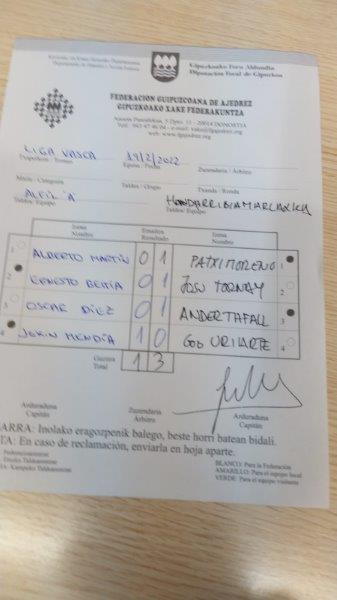 Gipuzkoako Foru Aldundia
Diputación Foral de Gipuzkoa
FEDERACION GUIPUZCOANA DE AJEDREZ
GIPUZKOAKO XAKE FEDERAKUNTZA
LIGA VASCA 19/2/2022
Txapelketa / Torneo Eguna / Fecha Zuzendaria / Arbitro
Maila / Categoría Taldea / Grupo Txanda / Ronda
ALFIL A HONDARRIBIA MARLAXKA
Taldea / Equipo Taldea / Equipo
Izena Emaitza Izena
Nombre Resultado Nombre
1 ALBERTO MARTÍN 0 1 PATXI MORENO 1
2 ERNESTO BEITIA 0 1 JOSU TORNAY 2
3 OSCAR DÍEZ 0 1 ANDER THAFALL 3
4 JOKIN MENDÍA 1 0 GOD URIARTE 4
Guztira 1 3
Total
Arduraduna Zuzendaria Arduraduna
Capitán Árbitro Capitán
ARRA: Inolako eragozpenik balego, beste horri batean bidali.
TA: En caso de reclamación, enviarla en hoja aparte.
BLANCO: Para la Federación
AMARILLO: Para el equipo local
VERDE: Para el equipo visitante